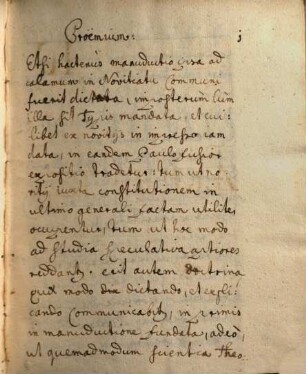 Proëmium:
1
Etsi hactenus manuductio juxta ad
calamum in Novitiatu communi
fuerit dictata, imposterum cum
illa sit Typis mandata, et cui-
libet ex novitijs impressa iam
data, in eandem Paulo fusior
expositio tradetur: tum ut no-
vitij iuxta constitutionem in
ultimo generali factam utilite,
occupentur, tum ut hoc modo
ad studia speculativa aptiores
reddantz. erit autem doctrina
quæ modo dictando, et expli-
cando communicabitz, in primis
in manuductione fundata, adeò,
ut quemadmodum scientia Theo-